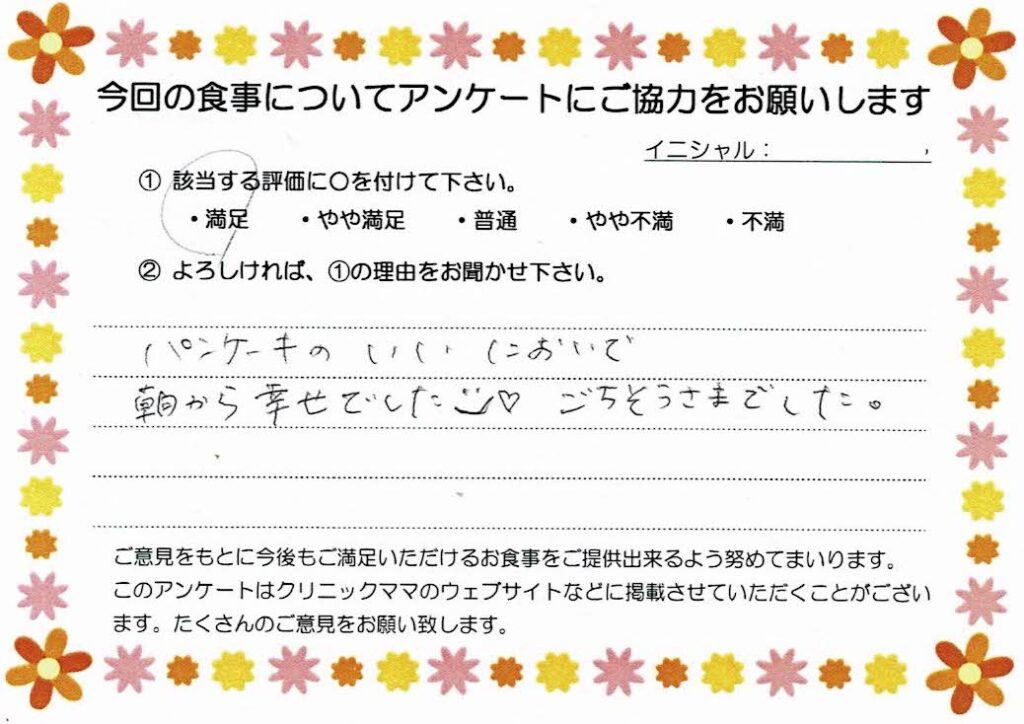 今回の食事についてアンケートにご協力をお願いします
イニシャル：
① 該当する評価に○を付けて下さい。
・満足 ・やや満足 ・普通 ・やや不満 ・不満
② よろしければ、①の理由をお聞かせ下さい。
パンケーキの いい においで
朝から幸せでした♡ ごちそうさまでした。
ご意見をもとに今後もご満足いただけるお食事をご提供出来るよう努めてまいります。
このアンケートはクリニックママのウェブサイトなどに掲載させていただくことがござい
ます。たくさんのご意見をお願い致します。